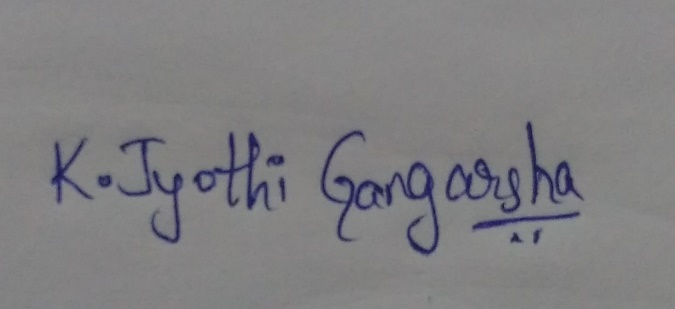 K. Jyothi Gangarsha